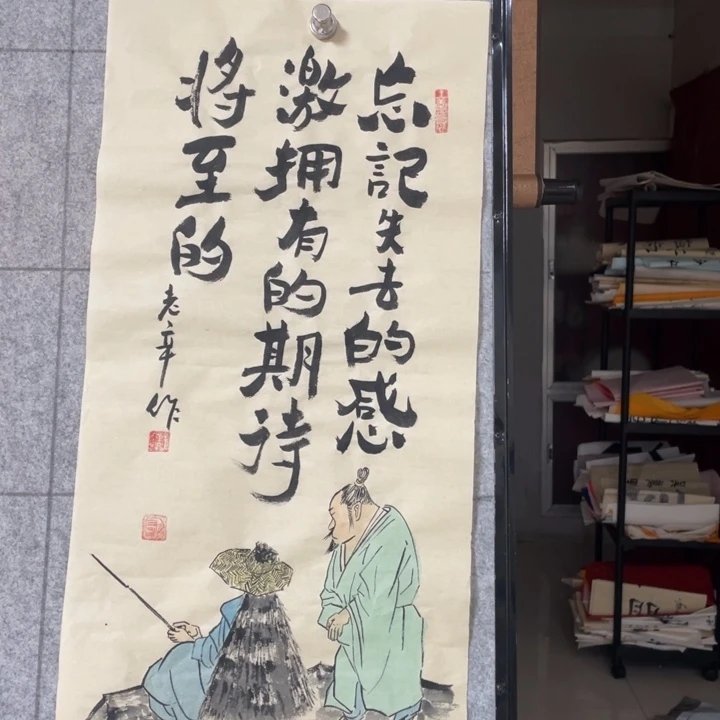 忘記失去的感
激拥有的期待
将至的
老辛作